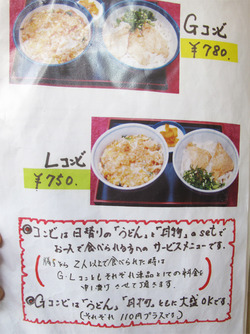 Gコンビ
¥780.
Lコンビ
¥750.
◎コンビは日替りの「うどん」と「丼物」のsetで
お1人で食べられる方へのサービスメニューです。
2人以上で食べられた時は
G・Lコンビもそれぞれ単品としての料金を
申し受けさせて頂きます。
◎Gコンビは「うどん」、「丼物」ともに大盛OKです。
(それぞれ110円プラスです)